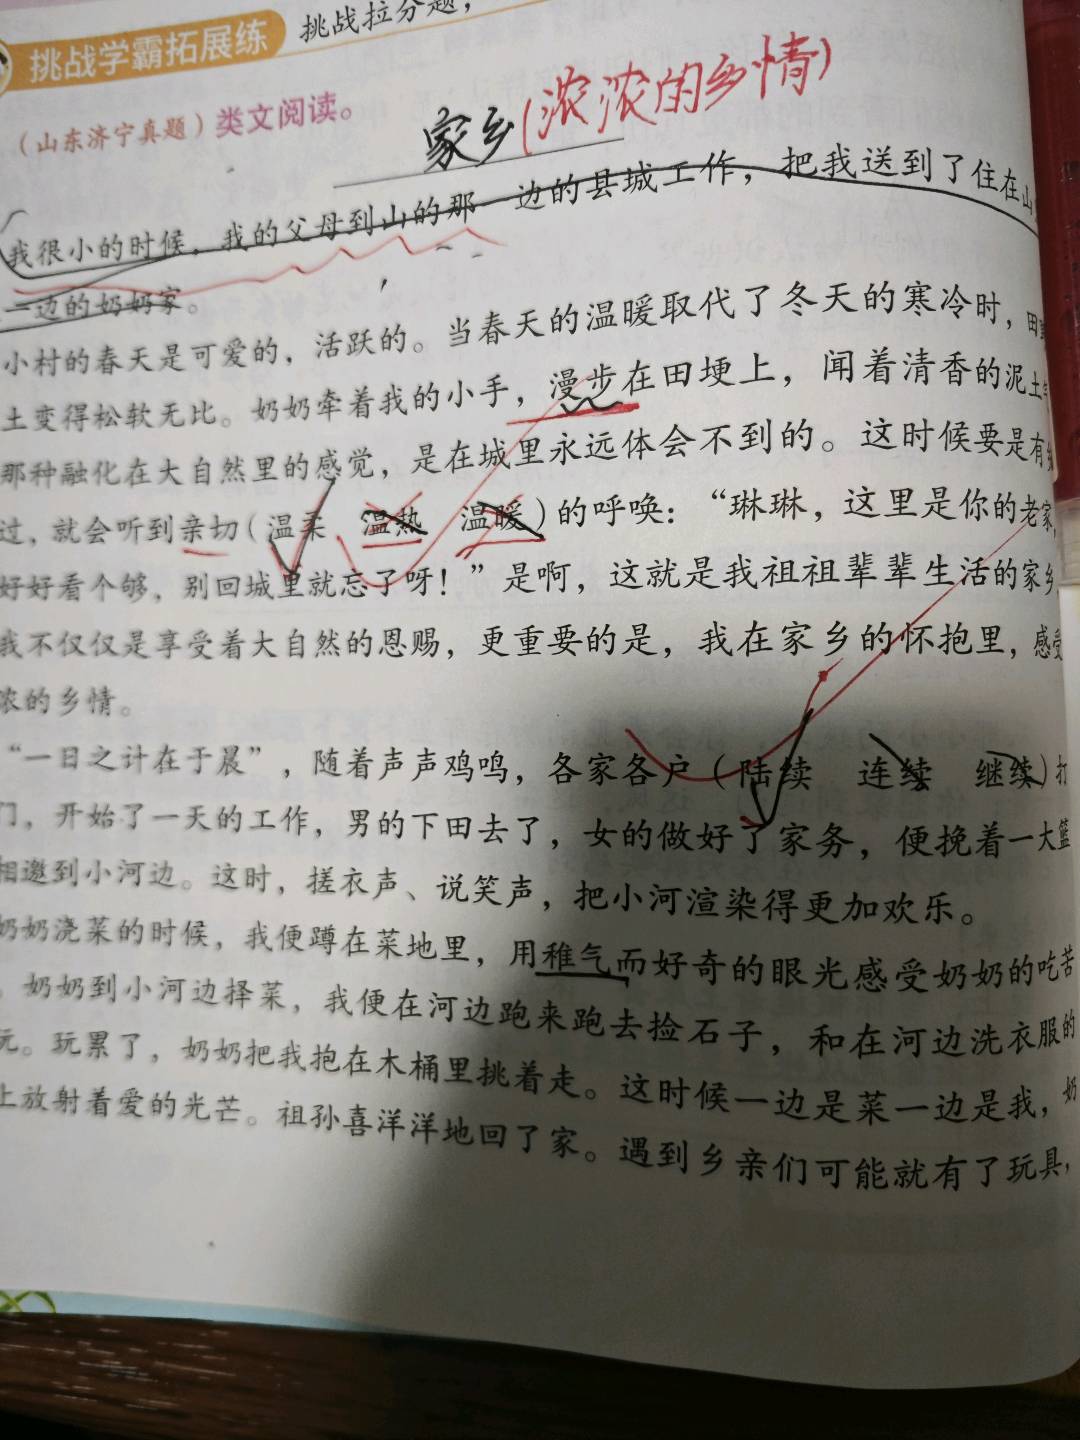 挑战学霸拓展练 挑战拉分题,
(山东济宁真题)类文阅读。
家乡(浓浓的乡情)
我很小的时候,我的父母到山的那一边的县城工作,把我送到了住在山
一边的奶奶家。
小村的春天是可爱的,活跃的。当春天的温暖取代了冬天的寒冷时,田
土变得松软无比。奶奶牵着我的小手,漫步在田埂上,闻着清香的泥土
那种融化在大自然里的感觉,是在城里永远体会不到的。这时候要是有
过,就会听到亲切(温柔 温热 温暖)的呼唤:“琳琳,这里是你的老家,
好好看个够,别回城里就忘了呀!”是啊,这就是我祖祖辈辈生活的家乡
我不仅仅是享受着大自然的恩赐,更重要的是,我在家乡的怀抱里,感受
浓的乡情。
“一日之计在于晨”,随着声声鸡鸣,各家各户(陆续 连续 继续)打
门,开始了一天的工作,男的下田去了,女的做好了家务,便挽着一大篮
相邀到小河边。这时,搓衣声、说笑声,把小河渲染得更加欢乐。
奶奶浇菜的时候,我便蹲在菜地里,用稚气而好奇的眼光感受奶奶的吃苦
。奶奶到小河边择菜,我便在河边跑来跑去捡石子,和在河边洗衣服的
玩。玩累了,奶奶把我抱在木桶里挑着走。这时候一边是菜一边是我,奶
上放射着爱的光芒。祖孙喜洋洋地回了家。遇到乡亲们可能就有了玩具,